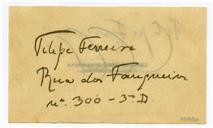 Filipe Ferreira
Rua dos Fanqueiros
nº. 300 - 3º D